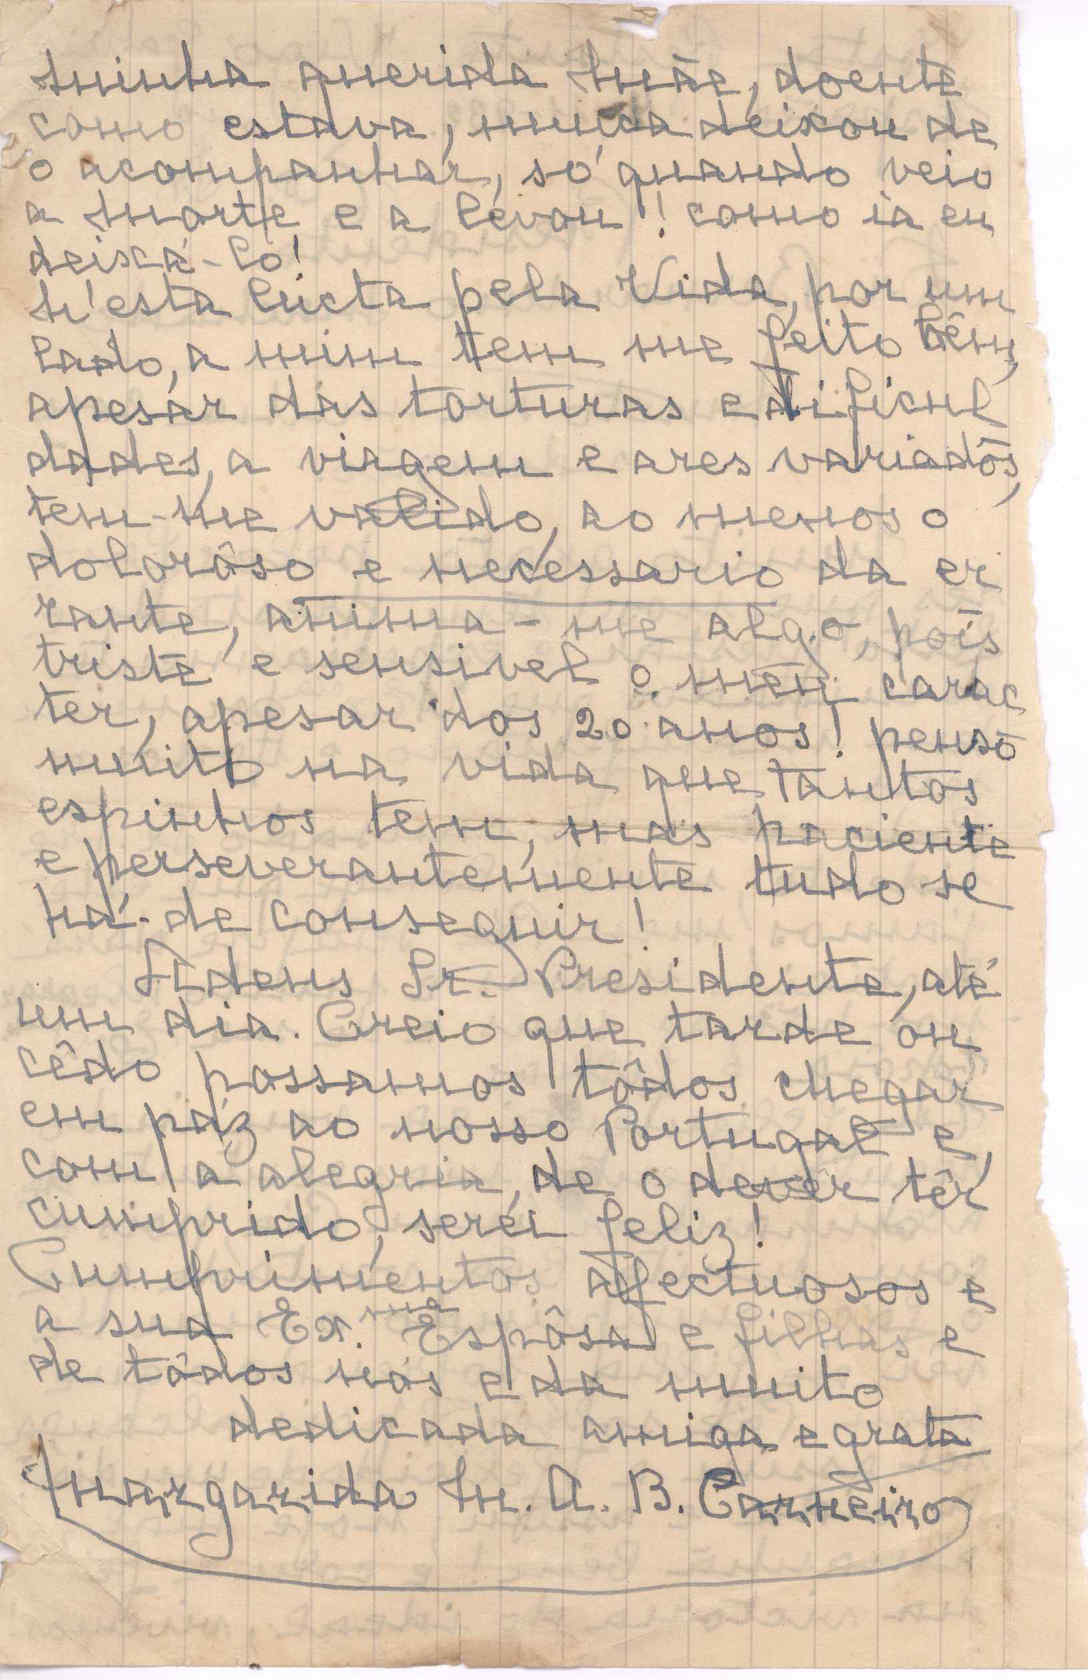 minha querida Mãe, doente
como estava, nunca deixou de
o acompanhar, só quando veio
a morte e a levou! como ia eu
deixá-lo!
N'esta lucta pela Vida, por um
lado, a mim tem me feito bêm,
apesar das torturas e dificul
dades, a viagem e ares variados,
tem-me valido, ao menos o
dolorôso e necessario da er
rante, anima-me algo, pois
triste e sensivel o meu carac
ter, apesar dos 20 anos! penso
muito na vida que tantos
espinhos tem, mas paciente
e perseverantemente tudo se
há-de conseguir!
Adeus Sr. Presidente, até
um dia. Creio que tarde ou
cêdo possamos tôdos chegar
em paz ao nosso Portugal e,
com a alegria, de o dever têr
cumprido, serei feliz!
Cumprimentos afectuosos e
a sua Ex.ma Espôsa e filhas e
de tôdos nós e da muito
dedicada amiga e grata
Margarida M. A. B. Carneiro